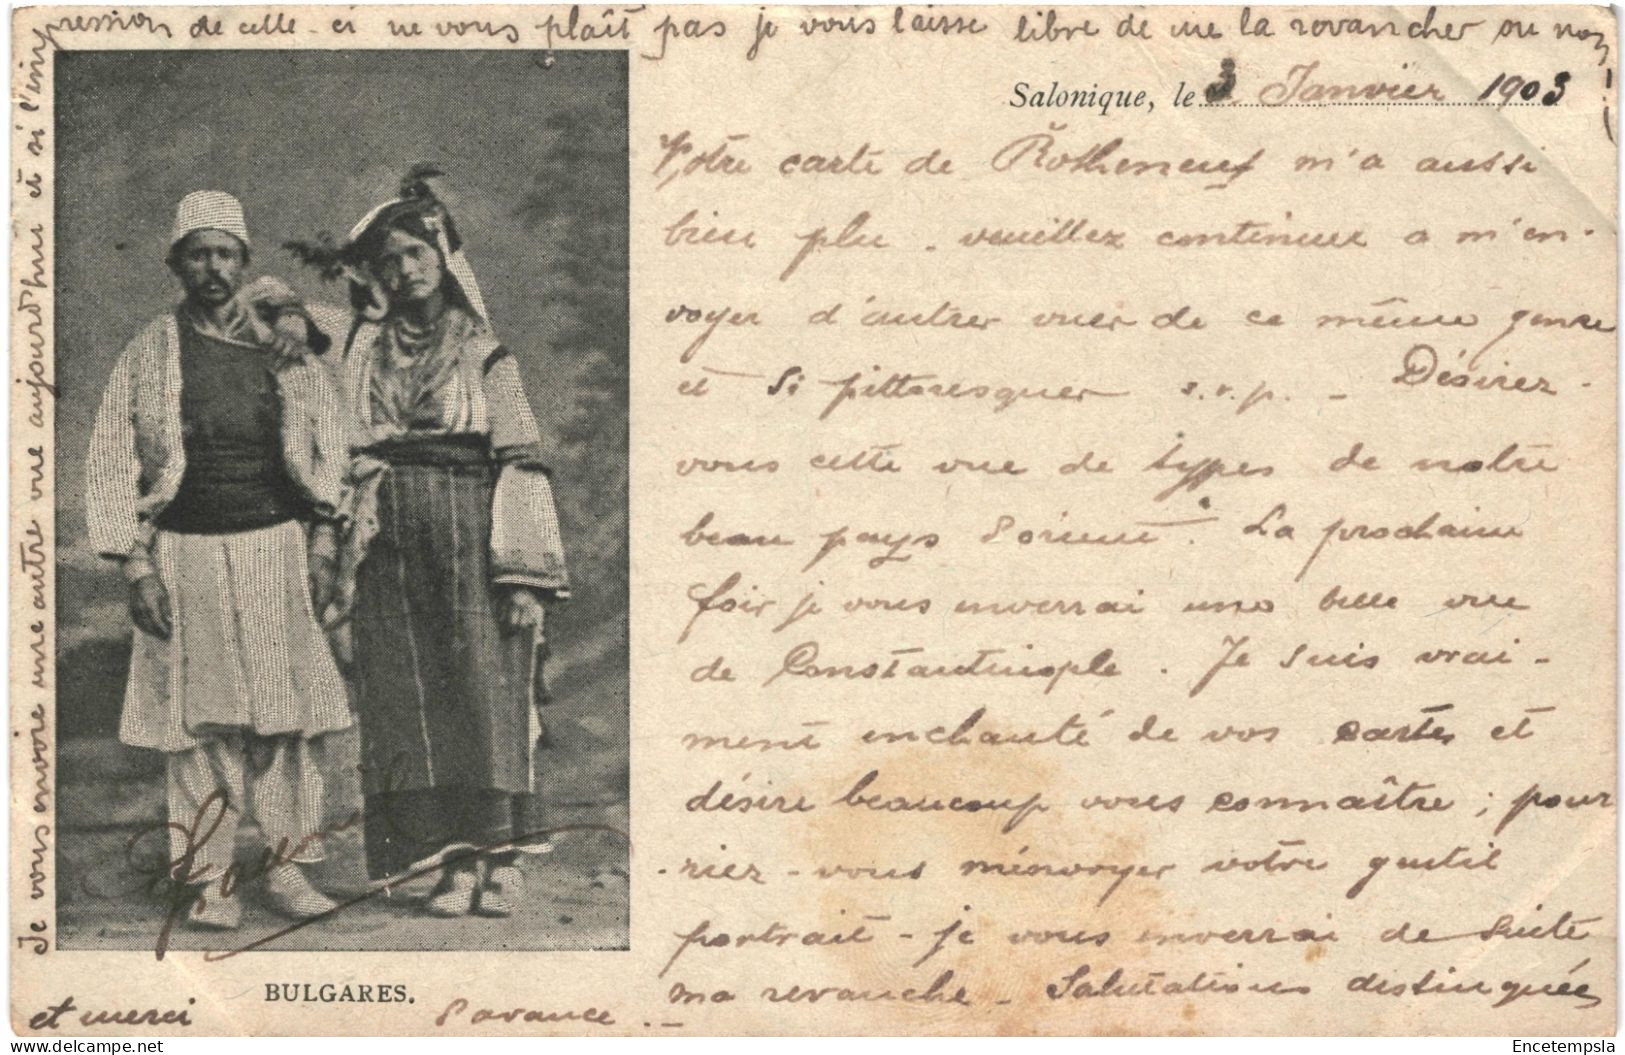 Salonique, le 3 Janvier 1903
Votre carte de Rothéneuf m'a aussi
bien plu. veuillez continuer a m'en-
voyer d'autres vues de ce même genre
et si pittoresques s.v.p. - Désirez-
vous cette vue de types de notre
beau pays d'orient? La prochaine
fois je vous enverrai une belle vue
de Constantinople. Je suis vrai-
ment enchanté de vos cartes et
désire beaucoup vous connaître; pour-
riez-vous m'envoyer votre gentil
portrait - je vous enverrai de suite
ma revanche - Salutations distinguées
et merci d'avance --
BULGARES.
Je vous envoie une autre vue aujourd'hui et si l'im
pression de celle-ci ne vous plaît pas je vous laisse libre de me la revancher ou non!
Encetempsla
www.delcampe.net